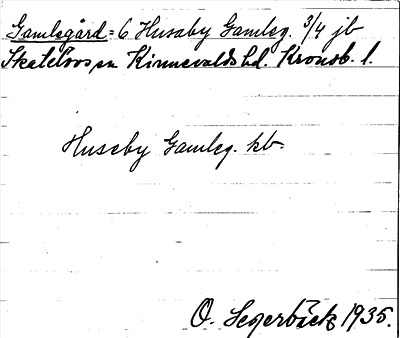 Gamlegård = 6 Husaby Gamleg. 3/4 jb
Skatelövs sn Kinnevalds hd. Kronob. l.
Huseby Gamleg. kb.
O. Segerbäck 1935.